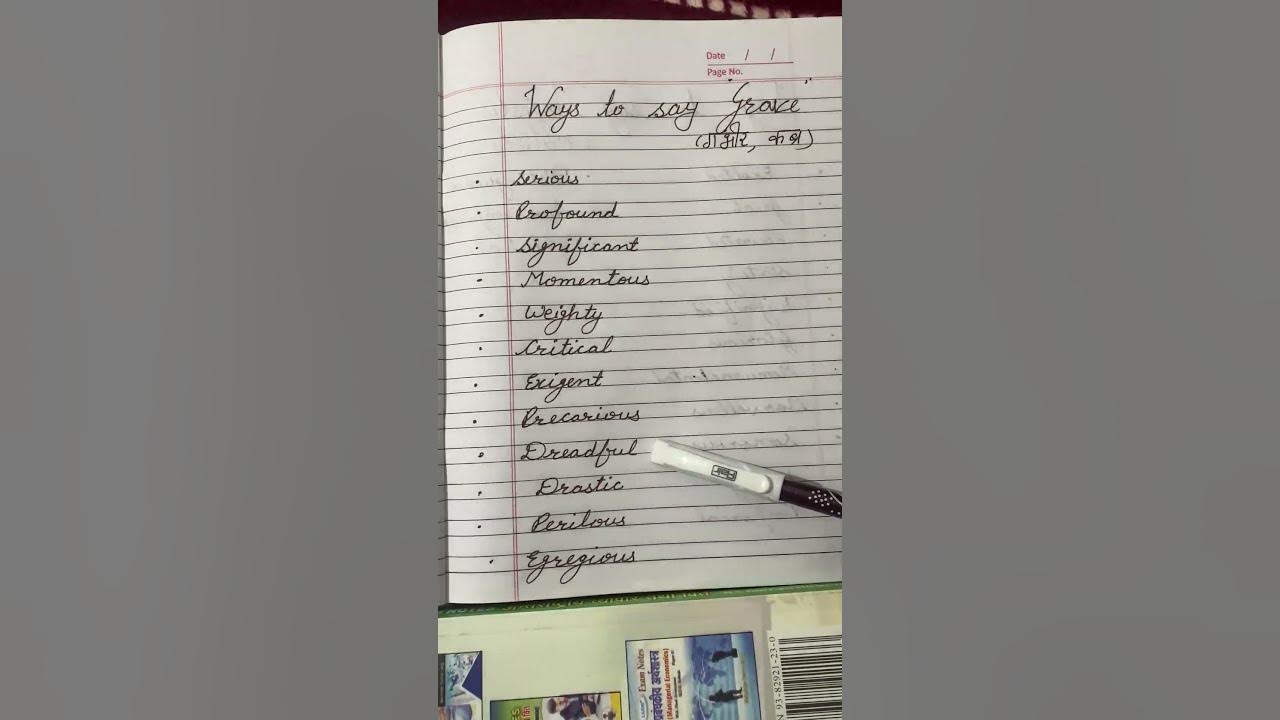 Date / /
Page No.
Ways to say "Grave"
(गंभीर, कब्र)
• Serious
• Profound
• Significant
• Momentous
• Weighty
• Critical
• Exigent
• Precarious
• Dreadful
• Drastic
• Perilous
• Egregious
Exam Notes
(Managerial Economics)
93-82921-23-0